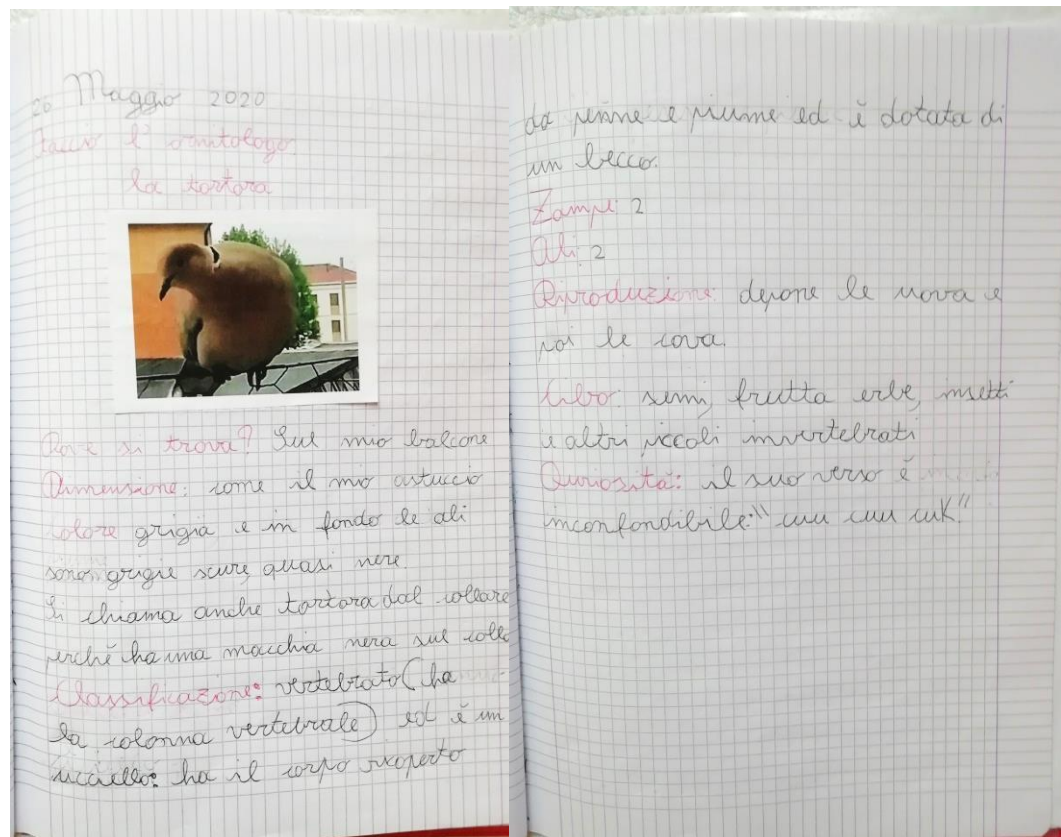 26 Maggio 2020
Faccio l'ornitologo
la tortora
Dove si trova? Sul mio balcone
Dimensione: come il mio astuccio
colore grigia e in fondo le ali
sono grigie scure, quasi nere.
Si chiama anche tortora dal collare
perché ha una macchia nera sul collo
Classificazione: vertebrato (ha
la colonna vertebrale) ed è un
uccello: ha il corpo ricoperto
da penne e piume ed è dotata di
un becco.
Zampe: 2
Ali: 2
Riproduzione: depone le uova e
poi le cova.
Cibo: semi, frutta erbe, insetti
e altri piccoli invertebrati
Curiosità: il suo verso è
inconfondibile: "cuu cuu cuk"